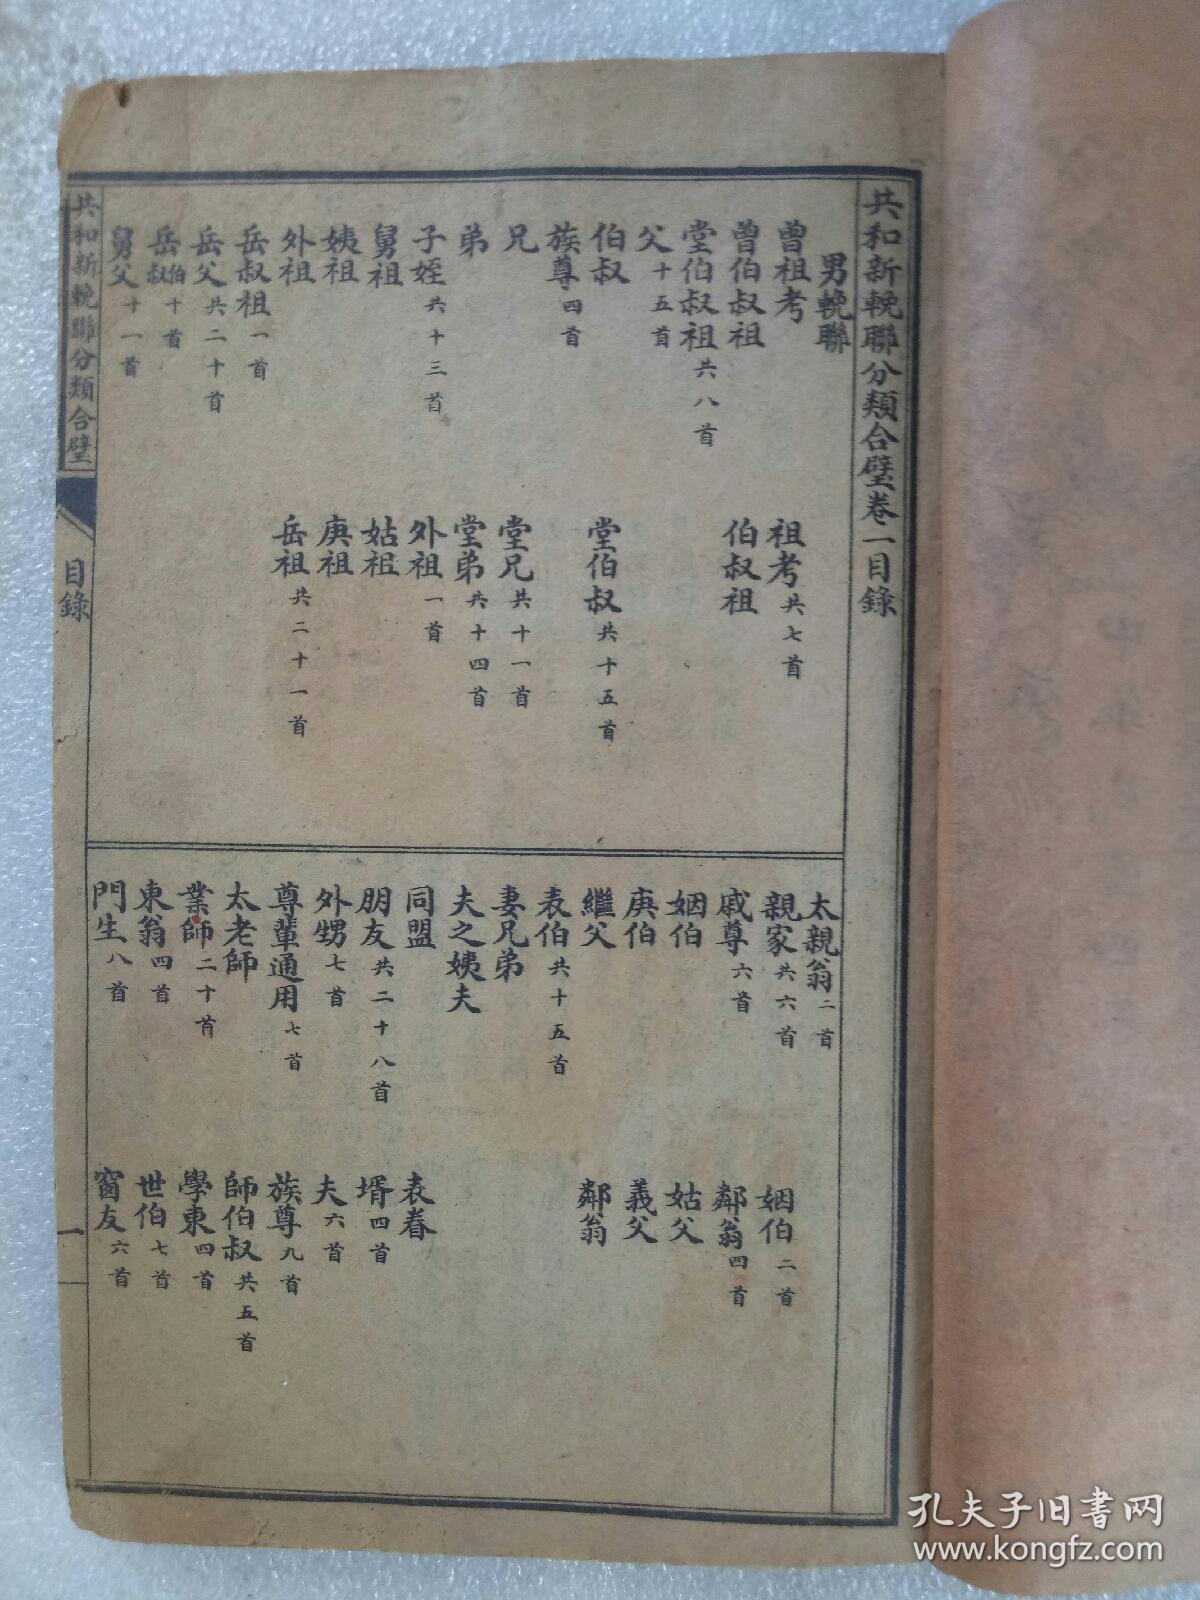 共和新輓聯分類合璧卷一目錄
男輓聯
曾祖考 祖考共七首
曾伯叔祖 伯叔祖
堂伯叔祖共八首
父十五首
伯叔 堂伯叔共十五首
族尊四首
兄 堂兄共十一首
弟 堂弟共十四首
子姪共十三首 外祖一首
舅祖 姑祖
姨祖 庚祖
外祖 岳祖共二十一首
岳叔祖一首
岳父共二十首
岳伯叔十首
舅父十一首
太親翁二首
親家共六首 姻伯二首
戚尊六首 鄰翁四首
姻伯 姑父
庚伯 義父
繼父 鄰翁
表伯共十五首
妻兄弟
夫之姨夫
同盟 表眷
朋友共二十八首 壻四首
外甥七首 夫六首
尊輩通用七首 族尊九首
太老師 師伯叔共五首
業師二十首 學東四首
東翁四首 世伯七首
門生八首 窗友六首
共和新輓聯分類合璧
目錄
一
孔夫子旧书网
www.kongfz.com